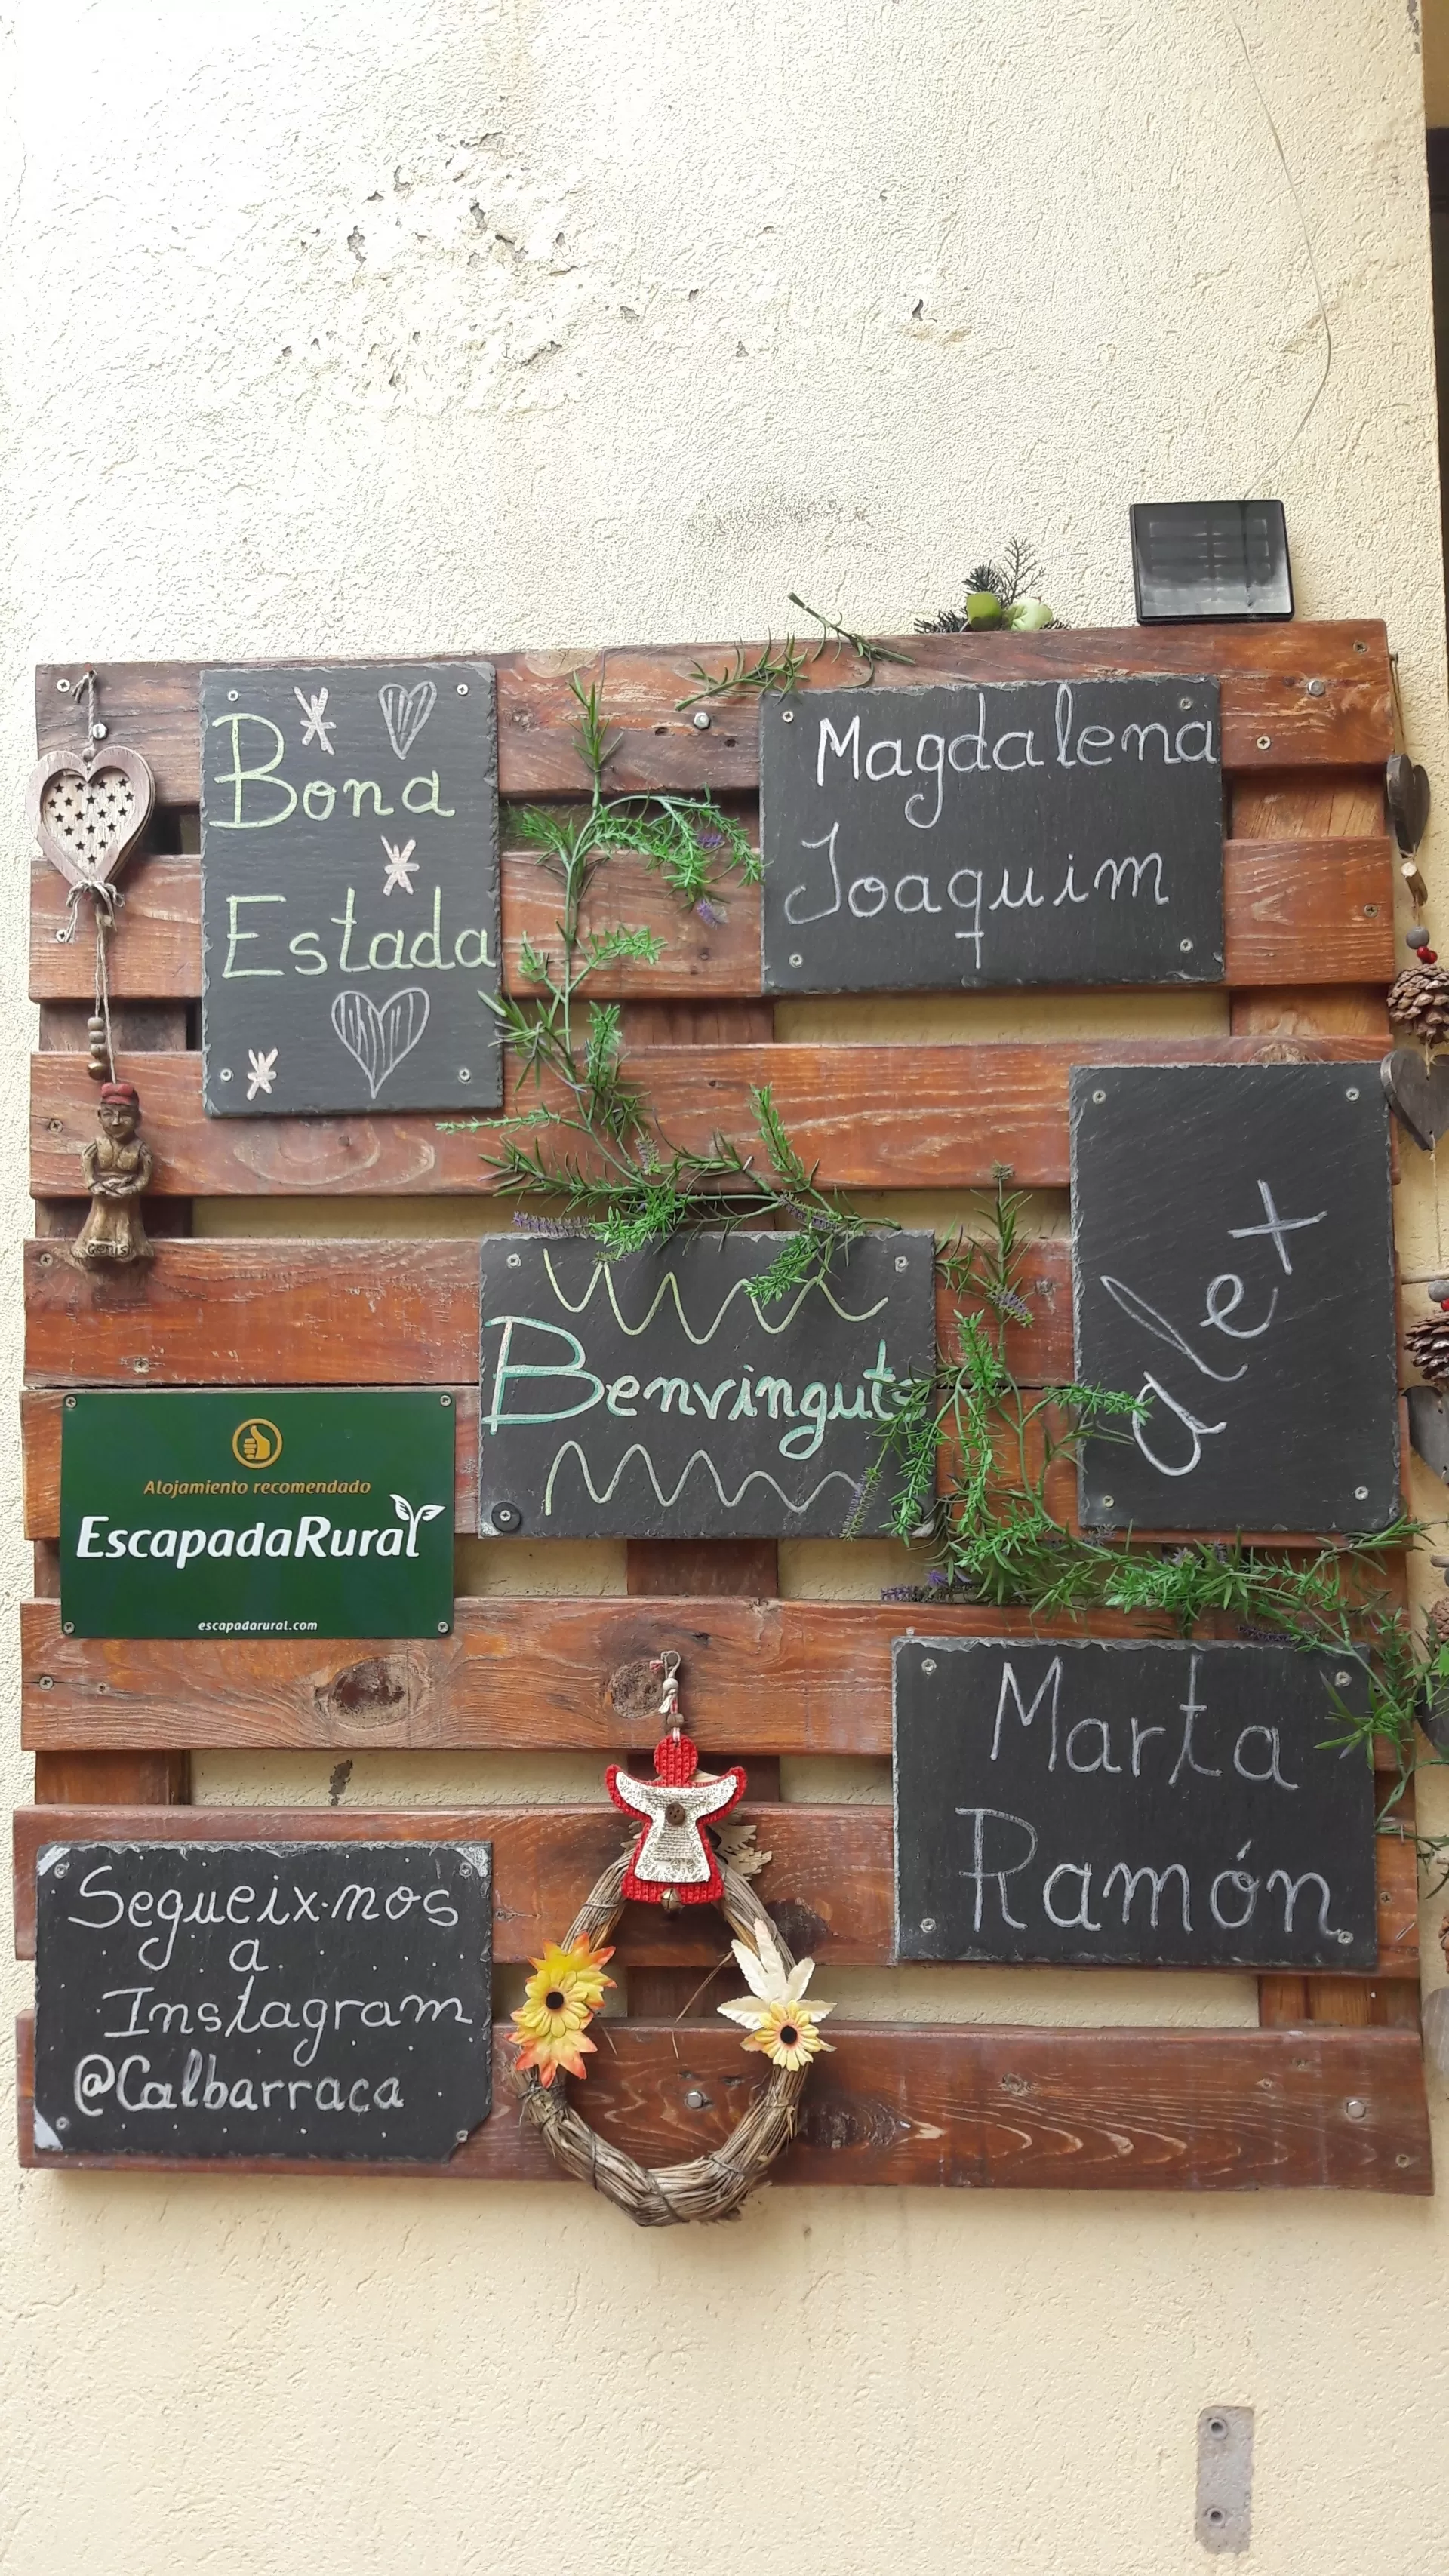 Bona
Estada
Magdalena
Joaquim
alex
Benvinguts
Alojamiento recomendado
EscapadaRural
escapadarural.com
Marta
Ramón
Segueix·nos
a
Instagram
@Calbarraca